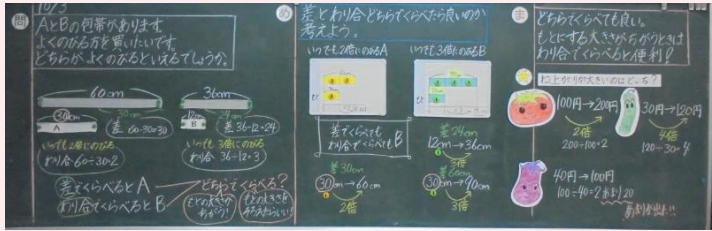 10/3
問
AとBの包帯があります。
よくのびる方を買いたいです。
どちらが、よくのびるといえるでしょうか。
60cm
30cm
A
差 60-30=30
いつでも2倍にのびる
わり合 60÷30=2
36cm
12cm
B
差 36-12=24
いつでも3倍にのびる
わり合 36÷12=3
差でくらべると A
わり合でくらべると B
どちらでくらべる?
もとの大きさが
ちがう!
もとの大きさを
そろえたらいい!
め
差とわり合どちらでくらべたら良いのか
考えよう。
いつでも2倍にのびるA
いつでも3倍にのびるB
差でくらべても
わり合でくらべても B
差30cm
30cm→60cm
2倍
差24cm
12cm→36cm
3倍
差60cm
30cm→90cm
3倍
ま
どちらでくらべても良い。
もとにする大きさがちがうときは
わり合でくらべると便利!
ね上がりが大きいのはどっち?
100円→200円
2倍
200÷100=2
30円→120円
4倍
120÷30=4
40円→100円
100÷40=2あまり20
あまりが出た!!